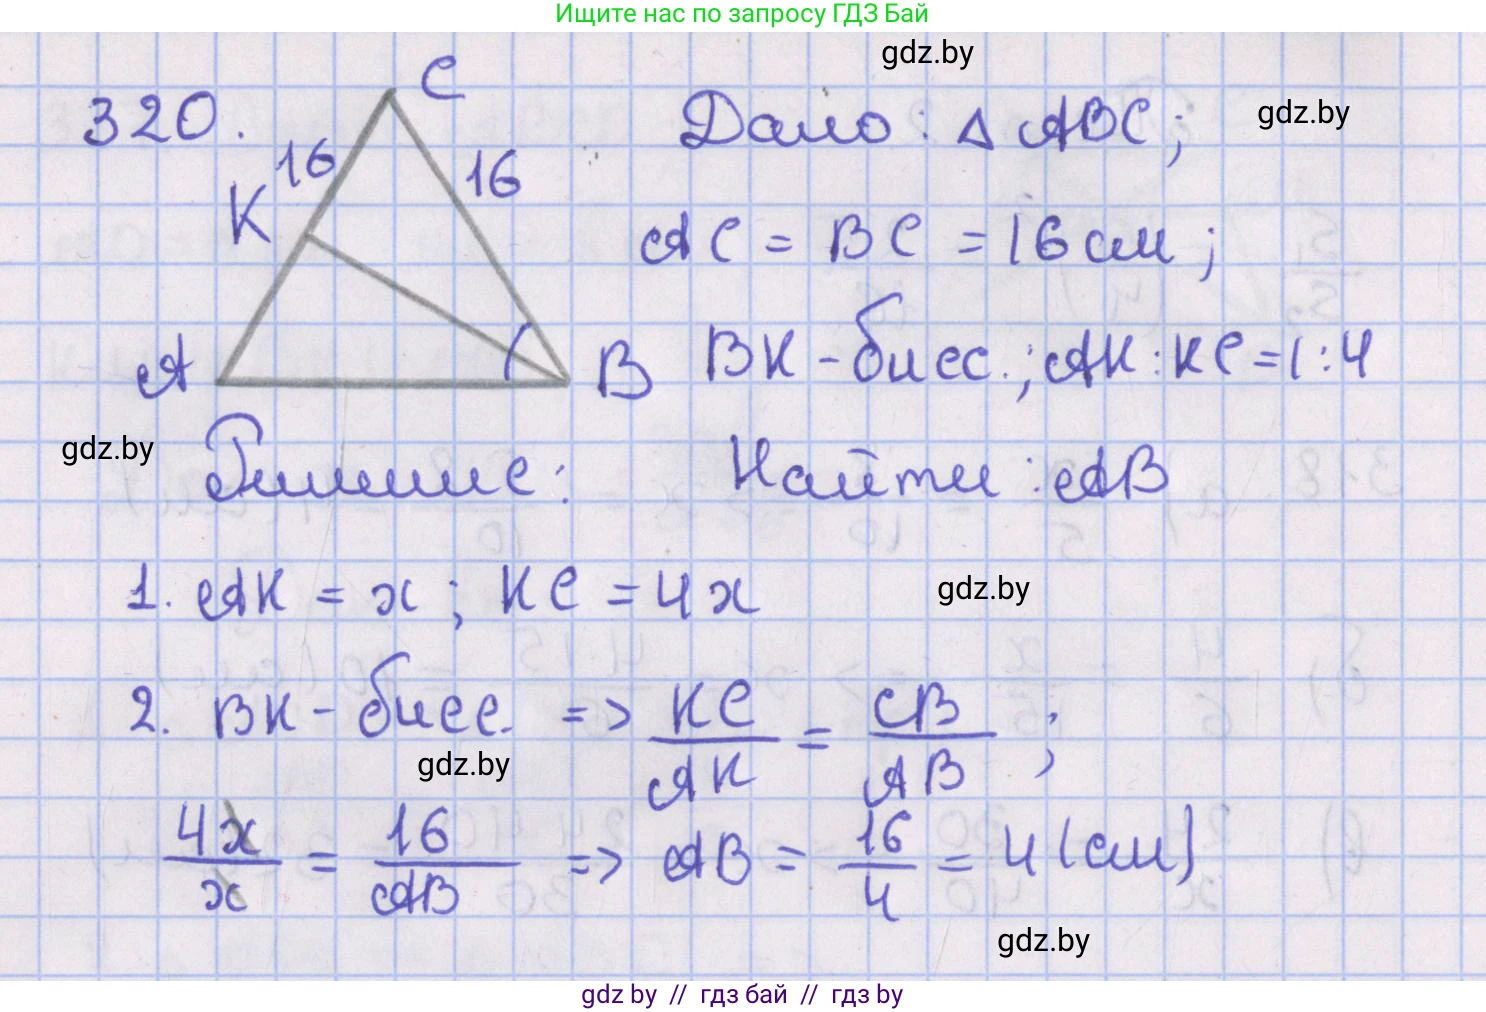 Ищите нас по запросу ГДЗ Бай
gdz.by
320.
C
Дано: △ ABC;
gdz.by
16
16
K
AC = BC = 16 см;
A
B
BK - бисс.; AK : KC = 1 : 4
gdz.by
Решение:
Найти: AB
1. AK = x; KC = 4x
gdz.by
2. BK - бисс. => KC/AK = CB/AB;
gdz.by
4x/x = 16/AB => AB = 16/4 = 4 (см)
gdz.by
gdz by // гдз бай // гдз by